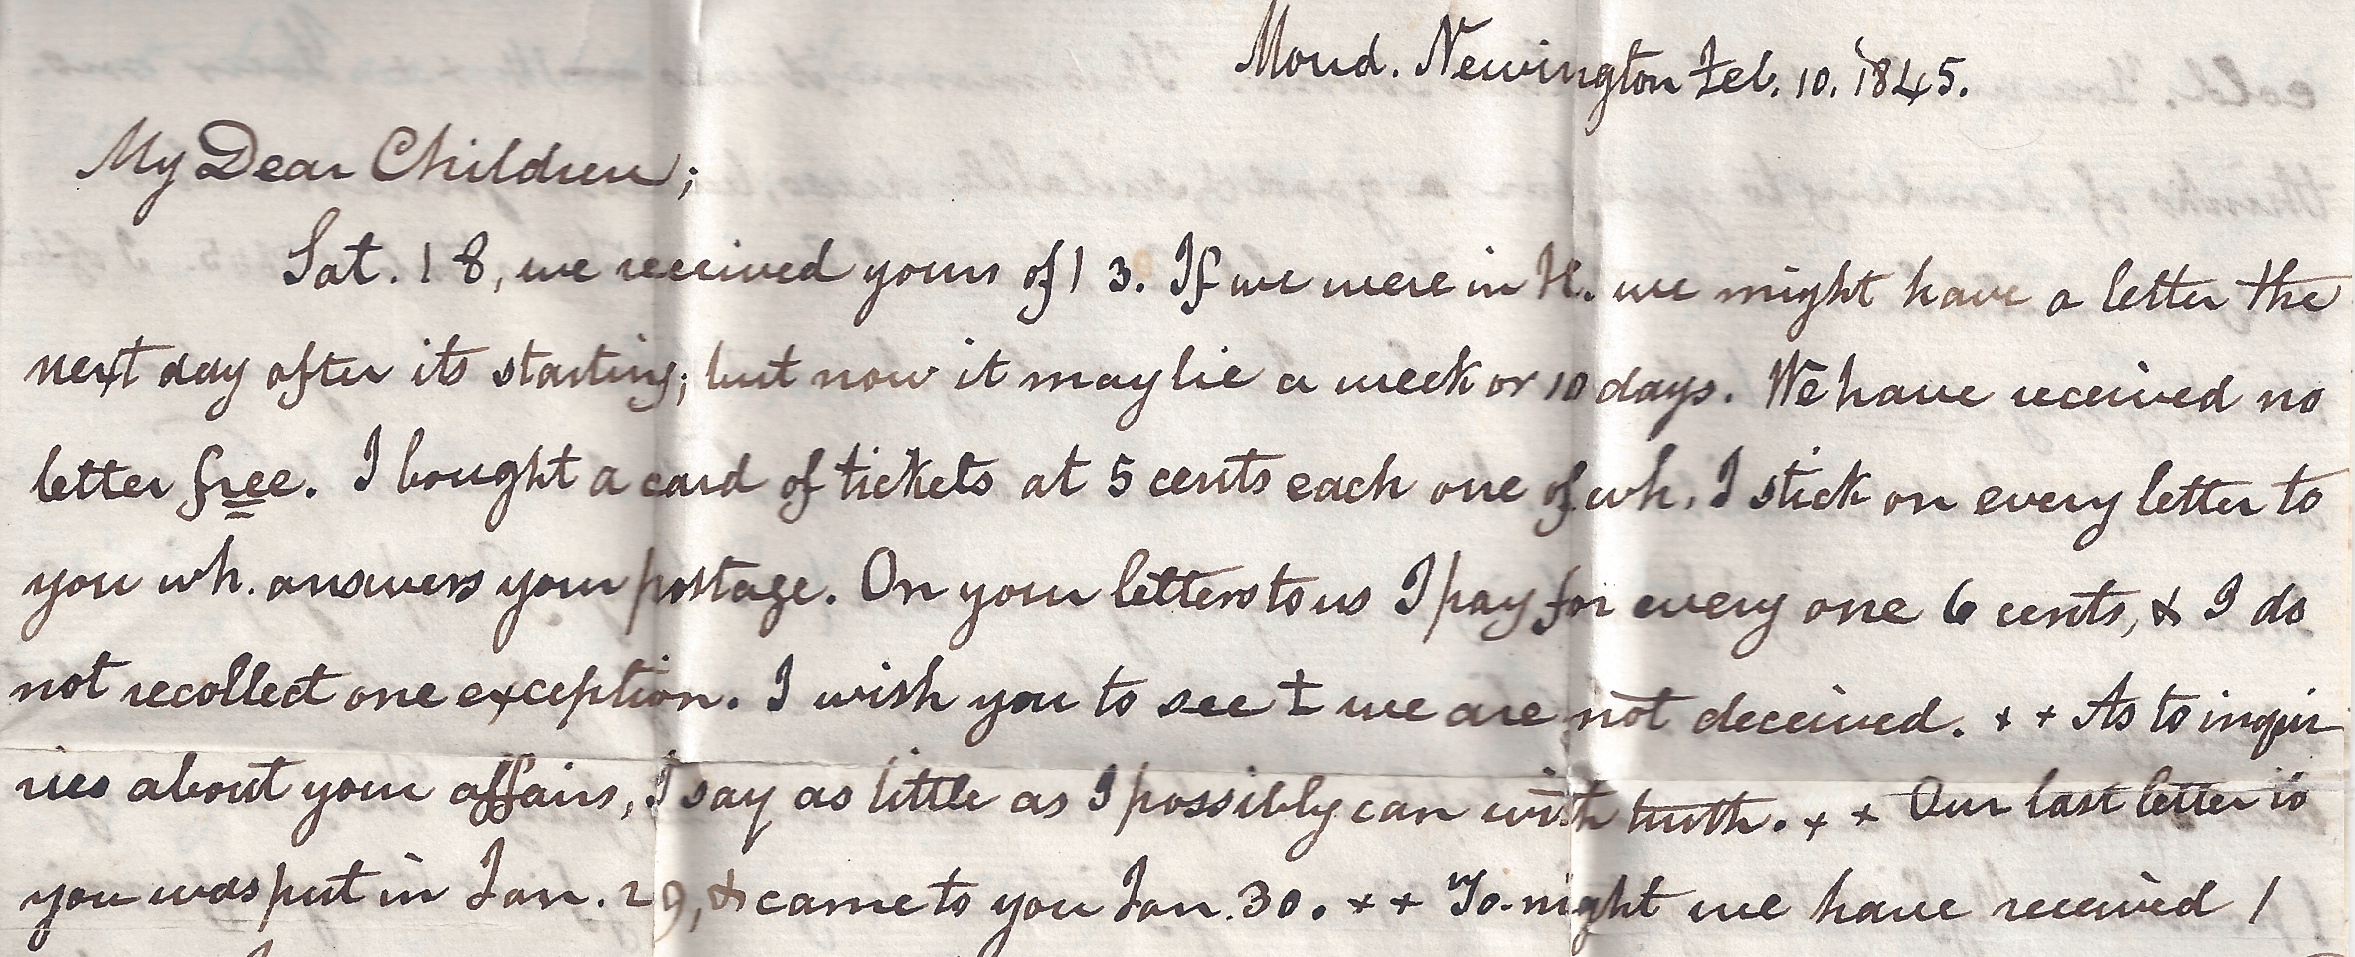 Mond. Newington Feb. 10. 1845.
My Dear Children;
Sat. 18, we received yours of 13. If we were in H. we might have a letter the
next day after its starting; but now it may lie a week or 10 days. We have received no
letter free. I bought a card of tickets at 5 cents each one of wh. I stick on every letter to
you wh. answers your postage. On your letters to us I pay for every one 6 cents, & I do
not recollect one exception. I wish you to see we are not deceived. + + As to inqui
ries about your affairs, I say as little as I possibly can with truth. + + Our last letter to
you was put in Jan. 29, & came to you Jan. 30. + + To-night we have received